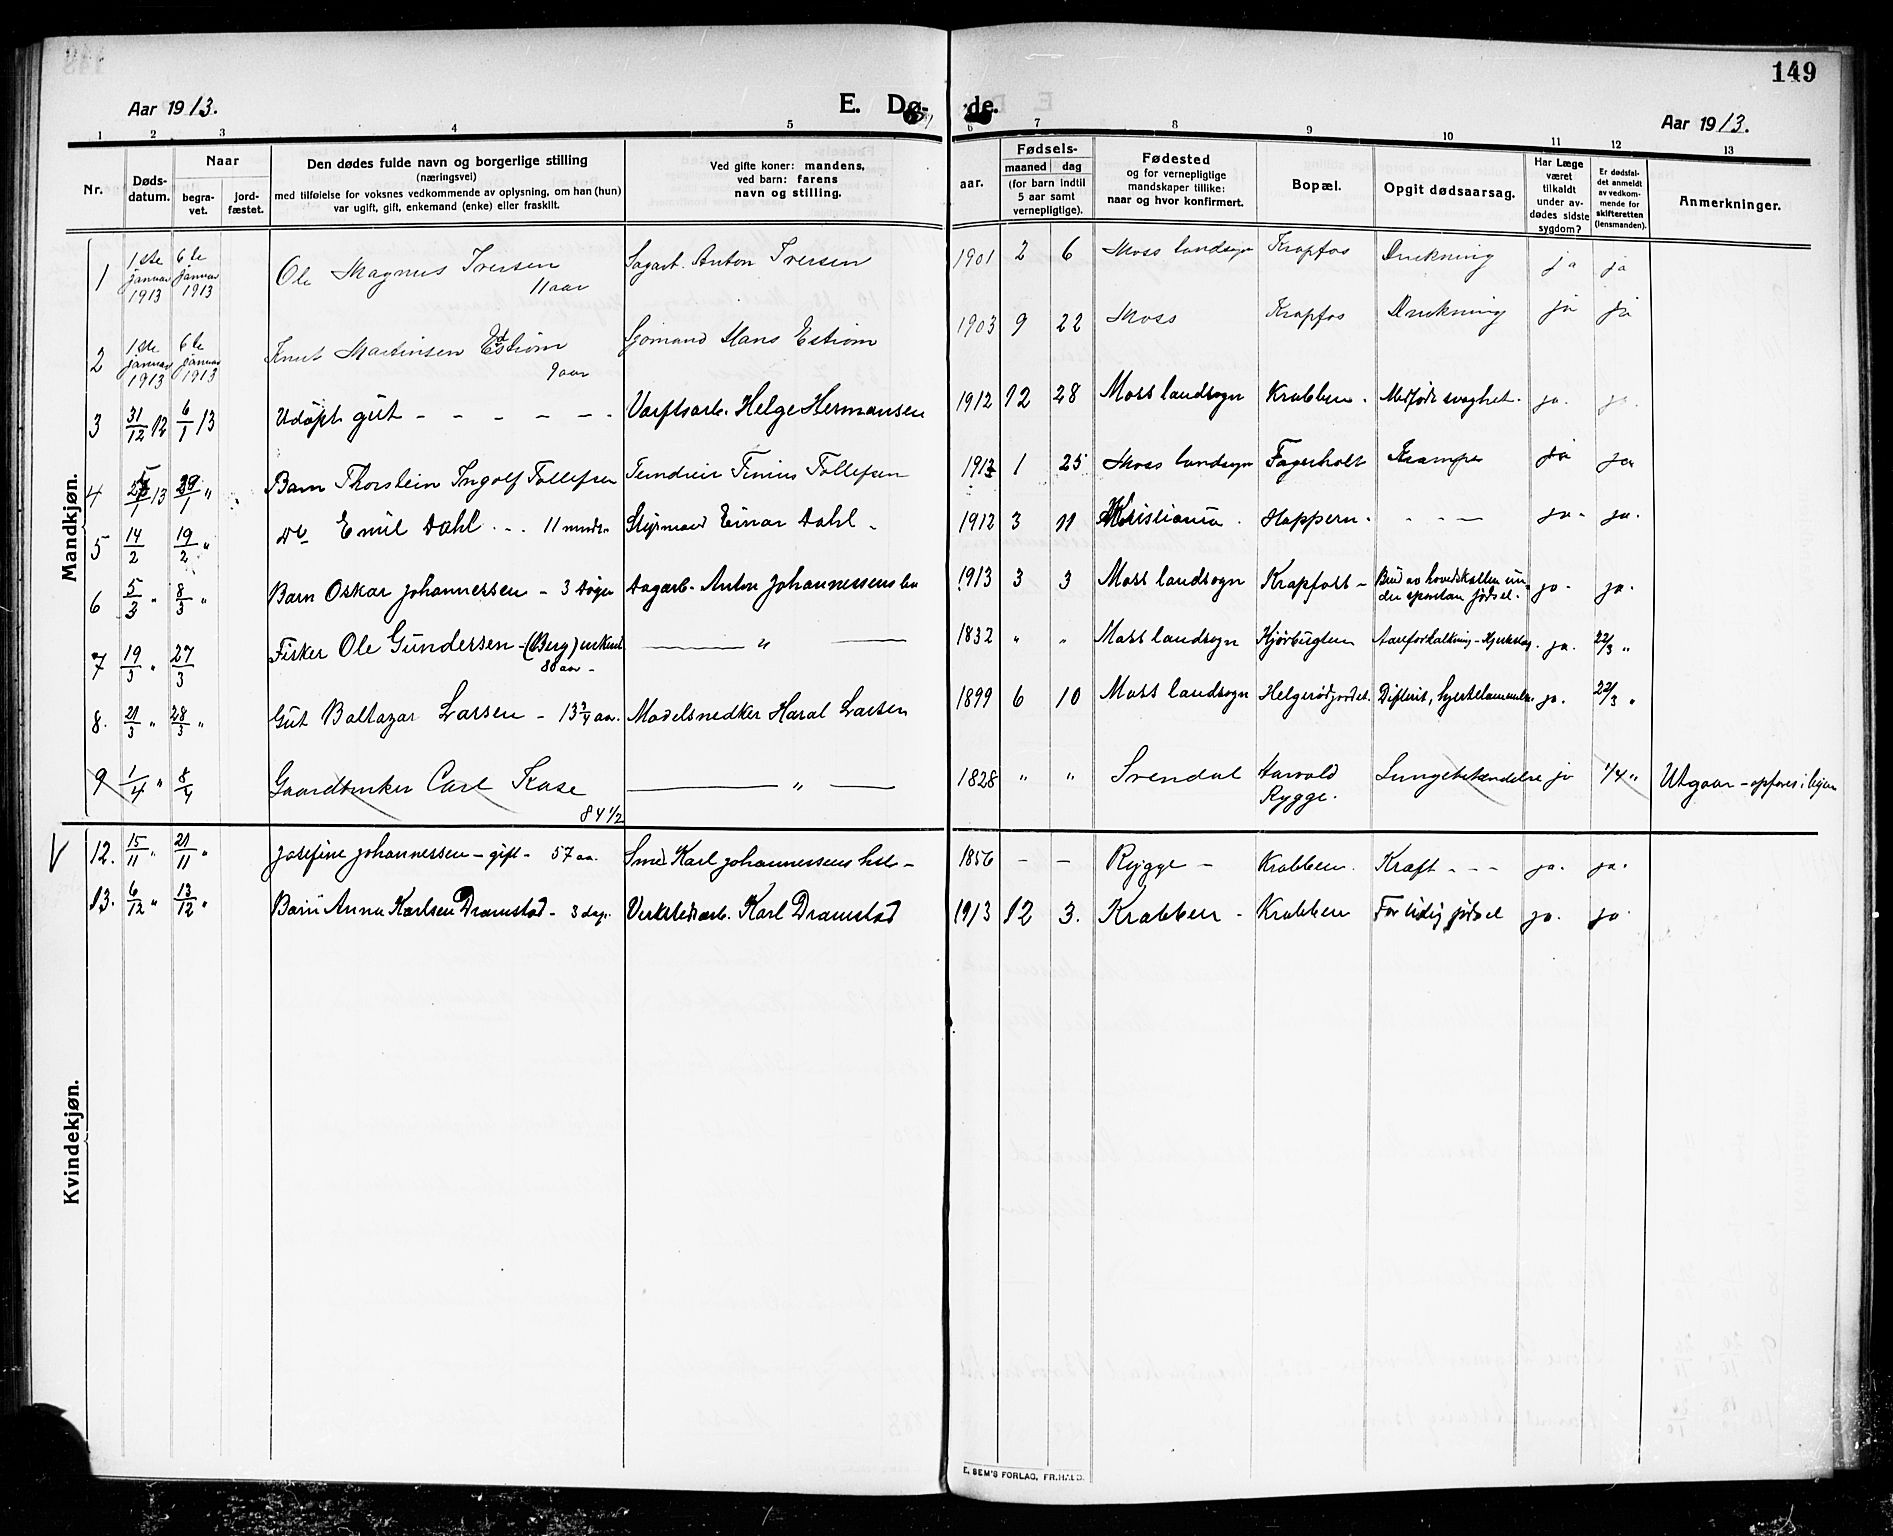 149
Aar 1913.
E. Dø-
de.
Aar 1913.
1 2 3 4 5 6 7 8 9 10 11 12 13
Nr.
Døds-
datum.
Naar
begra-
vet.
jord-
fæstet.
Den dødes fulde navn og borgerlige stilling
(næringsvei)
med tilføielse for voksnes vedkommende av oplysning, om han (hun)
var ugift, gift, enkemand (enke) eller fraskilt.
Ved gifte koner: mandens,
ved barn: farens
navn og stilling.
aar.
Fødsels-
maaned dag
(for barn indtil
5 aar samt
vernepligtige).
Fødested
og for vernepligtige
mandskaper tillike:
naar og hvor konfirmert.
Bopæl.
Opgit dødsaarsag.
Har Læge
været
tilkaldt
under av-
dødes sidste
sygdom?
Er dødsfal-
det anmeldt
av vedkom-
mende for
skifteretten
(lensmanden).
Anmerkninger.
Mandkjøn.
1 1ste januar 1913 6te januar 1913 Ole Magnus Iversen 11 aar Sagarb. Anton Iversen 1901 2 6 Moss landsogn Krapfos Drukning ja ja
2 1ste januar 1913 6te januar 1913 Knut Martinsen Estrøm 9 aar Sjømand Hans Estrøm 1903 9 22 Moss Krapfos Drukning ja ja
3 31/12 12 6/1 13 Udøpt gut - - - - - - Værftsarb. Helge Hermansen 1912 12 28 Moss landsogn Krabben. Medfødt svaghet. ja. ja.
4 13 29/1 " Barn Thorstein Ingolf Tollefsen Tollefsen 1913 1 25 Moss landsogn Fagerholt Krampe ja ja
5 14/2 19/2 " do Emil Dahl - - 11 mndr. Styrmand Einar Dahl - 1912 3 11 Kristiania. Hoppern. - - - ja. ja.
6 5/3 " 8/3 " Barn Oskar Johannessen - 3 døgn Dagarb. Anton Johannessens 1913 3 3 Moss landsogn Krapfoss - Brud av hovedskallen un-
der spontan fødsel. ja. ja.
7 19/3 " 27/3 Fisker Ole Gundersen - (Berg) enkem. 80 aar - — " — 1832 " " Moss landsogn Kjørbugten Aareforkalkning - Hjerteslag. ja. 22/3 "
8. 21/3 " 28/3 " Gut Baltazar Larsen - 13 3/4 aar. Modelsnedker Haral Larsen 1899 6 10 Moss landsogn Helgerødjordet. Difterit, hjertelammelse. ja. 22/3 "
9 1/4 " 8/4 Gaardbruker Carl Kase 84 1/2 — " — 1828 " " Svendal Harvold
Rygge. Lungebetændelse ja 1/4 " Utgaar - opføres i
Kvindekjøn.
V 12. 15/11 " 21/11 " Josefine Johannessen - gift - 57 aa. Smed Karl Johannessens hst - 1856 - - Rygge - Krabben. Kræft - - - ja. ja.
13. 6/12 " 13/12 " Barn Anna Karlsen Dramstad - 3 dag. Verkstedsarb. Karl Dramstad 1913 12 3. Krabben - Krabben For tidlig fødsel ja. ja.
E. SEM'S FORLAG, FR.HALD.